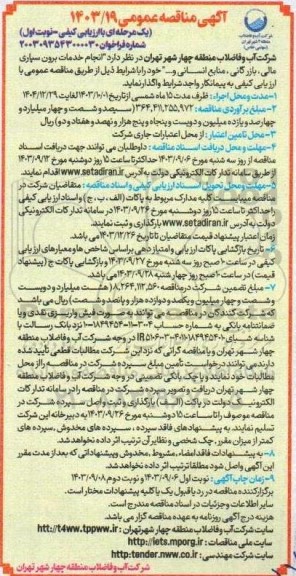 آگهی مناقصه عمومی ۱۴۰۳/۱۹
(یک مرحله ای با ارزیابی کیفی - نوبت اول)
شماره فراخوان ۲۰۰۳۰۹۳۵۴۳۰۰۰۰۳۰
شرکت آب و فاضلاب منطقه چهار شهر تهران در نظر دارد "انجام خدمات برون سپاری
مالی، بازرگانی، منابع انسانی و..." خود را با شرایط ذیل از طریق مناقصه عمومی با
ارزیابی کیفی به پیمانکار واجد شرایط واگذار نماید.
۱- مدت و محل اجرا: ظرف مدت ۱۵ ماه شمسی از تاریخ ۱۴۰۳/۱۰/۰۱ لغایت ۱۴۰۴/۱۲/۲۹
۲- مبلغ برآوردی مناقصه: ۳۶۴,۴۱۱,۲۵۵,۹۷۲ (سیصد و شصت و چهار میلیارد و
چهارصد و یازده میلیون و دویست و پنجاه و پنج هزار و نهصد و هفتاد و دو) ریال
۳- محل تامین اعتبار: از محل اعتبارات جاری شرکت
۴- مهلت و محل دریافت اسناد مناقصه: داوطلبان می توانند جهت دریافت اسناد
مناقصه از روز سه شنبه مورخ ۱۴۰۳/۰۹/۰۶ حداکثر تا ساعت ۱۵ روز دوشنبه مورخ ۱۴۰۳/۰۹/۱۲
از طریق سامانه تدارکات الکترونیکی دولت به آدرس www.setadiran.ir اقدام نمایند.
۵- مهلت و محل تحویل اسناد ارزیابی کیفی و اسناد مناقصه: متقاضیان شرکت در
مناقصه میبایست کلیه مدارک مربوط به پاکات (الف، ب، ج) و اسناد ارزیابی کیفی
را حداکثر تا ساعت ۱۵ روز دوشنبه مورخ ۱۴۰۳/۰۹/۲۶ در سامانه تدارکات الکترونیکی
دولت به آدرس www.setadiran.ir بارگذاری و ثبت نمایند.
زمان اعتبار پیشنهاد قیمت متقاضیان تا تاریخ ۱۴۰۳/۱۲/۲۶ می باشد.
۶- تاریخ بازگشایی پاکات ارزیابی و امتیازدهی براساس شاخص ها و معیارهای ارزیابی
کیفی در ساعت ۱۰ صبح روز سه شنبه مورخ ۱۴۰۳/۰۹/۲۷ و بازگشایی پاکات ج (پیشنهاد
قیمت) در ساعت ۱۰ صبح روز چهار شنبه ۱۴۰۳/۰۹/۲۸ می باشد.
۷- مبلغ تضمین شرکت در مناقصه ۸,۲۶۴,۲۱۲,۵۶۰ (هشت میلیارد و دویست
و شصت و چهار میلیون و یکصد و دوازده هزار و پانصد و شصت) ریال می باشد
که شرکت کنندگان در مناقصه می توانند به صورت فیش واریزی نقدی و یا
ضمانتنامه بانکی به شماره حساب نزد بانک رسالت با
شناسه شبای در وجه شرکت آب و فاضلاب منطقه
چهار شهر تهران و یا مناقصه گرانی که نزد این شرکت مطالبات قطعی تأیید شده
دارند می توانند درخواست تأمین مبلغ سپرده شرکت در مناقصه را از محل
مطالبات خود نمایند و یا چک بانکی تضمینی در وجه شرکت آب و فاضلاب منطقه
چهار شهر تهران دریافت و تصویر سپرده شرکت در مناقصه را در سامانه تدارکات
الکترونیک دولت در پاکت (الف) بارگذاری و ثبت و اصل سپرده شرکت در
مناقصه موصوف را تا ساعت ۱۵ دوشنبه مورخ ۱۴۰۳/۰۹/۲۶ به دبیرخانه این شرکت
تسلیم نمایند. به پیشنهادهای فاقد سپرده، سپرده های مخدوش، سپرده های
کمتر از میزان مقرر، چک شخصی و نظایر آن ترتیب اثر داده نخواهد شد.
۸- به پیشنهادات فاقد امضاء، مشروط، مخدوش و پیشنهاداتی که بعد از مدت مقرر
این آگهی واصل شود مطلقا ترتیب اثر داده نخواهد شد.
۹- زمان چاپ آگهی: نوبت اول ۱۴۰۳/۰۹/۰۶ و نوبت دوم ۱۴۰۳/۰۹/۰۸
برگزار کننده مناقصه در رد یا قبول یک یا کلیه پیشنهادات مختار است.
سایر اطلاعات و جزئیات در اسناد مناقصه مندرج است.
هزینه درج آگهی روزنامه به عهده مناقصه گزار می باشد.
سایت شرکت آب و فاضلاب منطقه چهار شهر تهران: http://t4ww.tppww.ir
سایت ملی مناقصات: http://iets.mporg.ir
سایت شرکت مهندسی: http:tender.nww.co.ir
شرکت آب و فاضلاب منطقه چهار شهر تهران